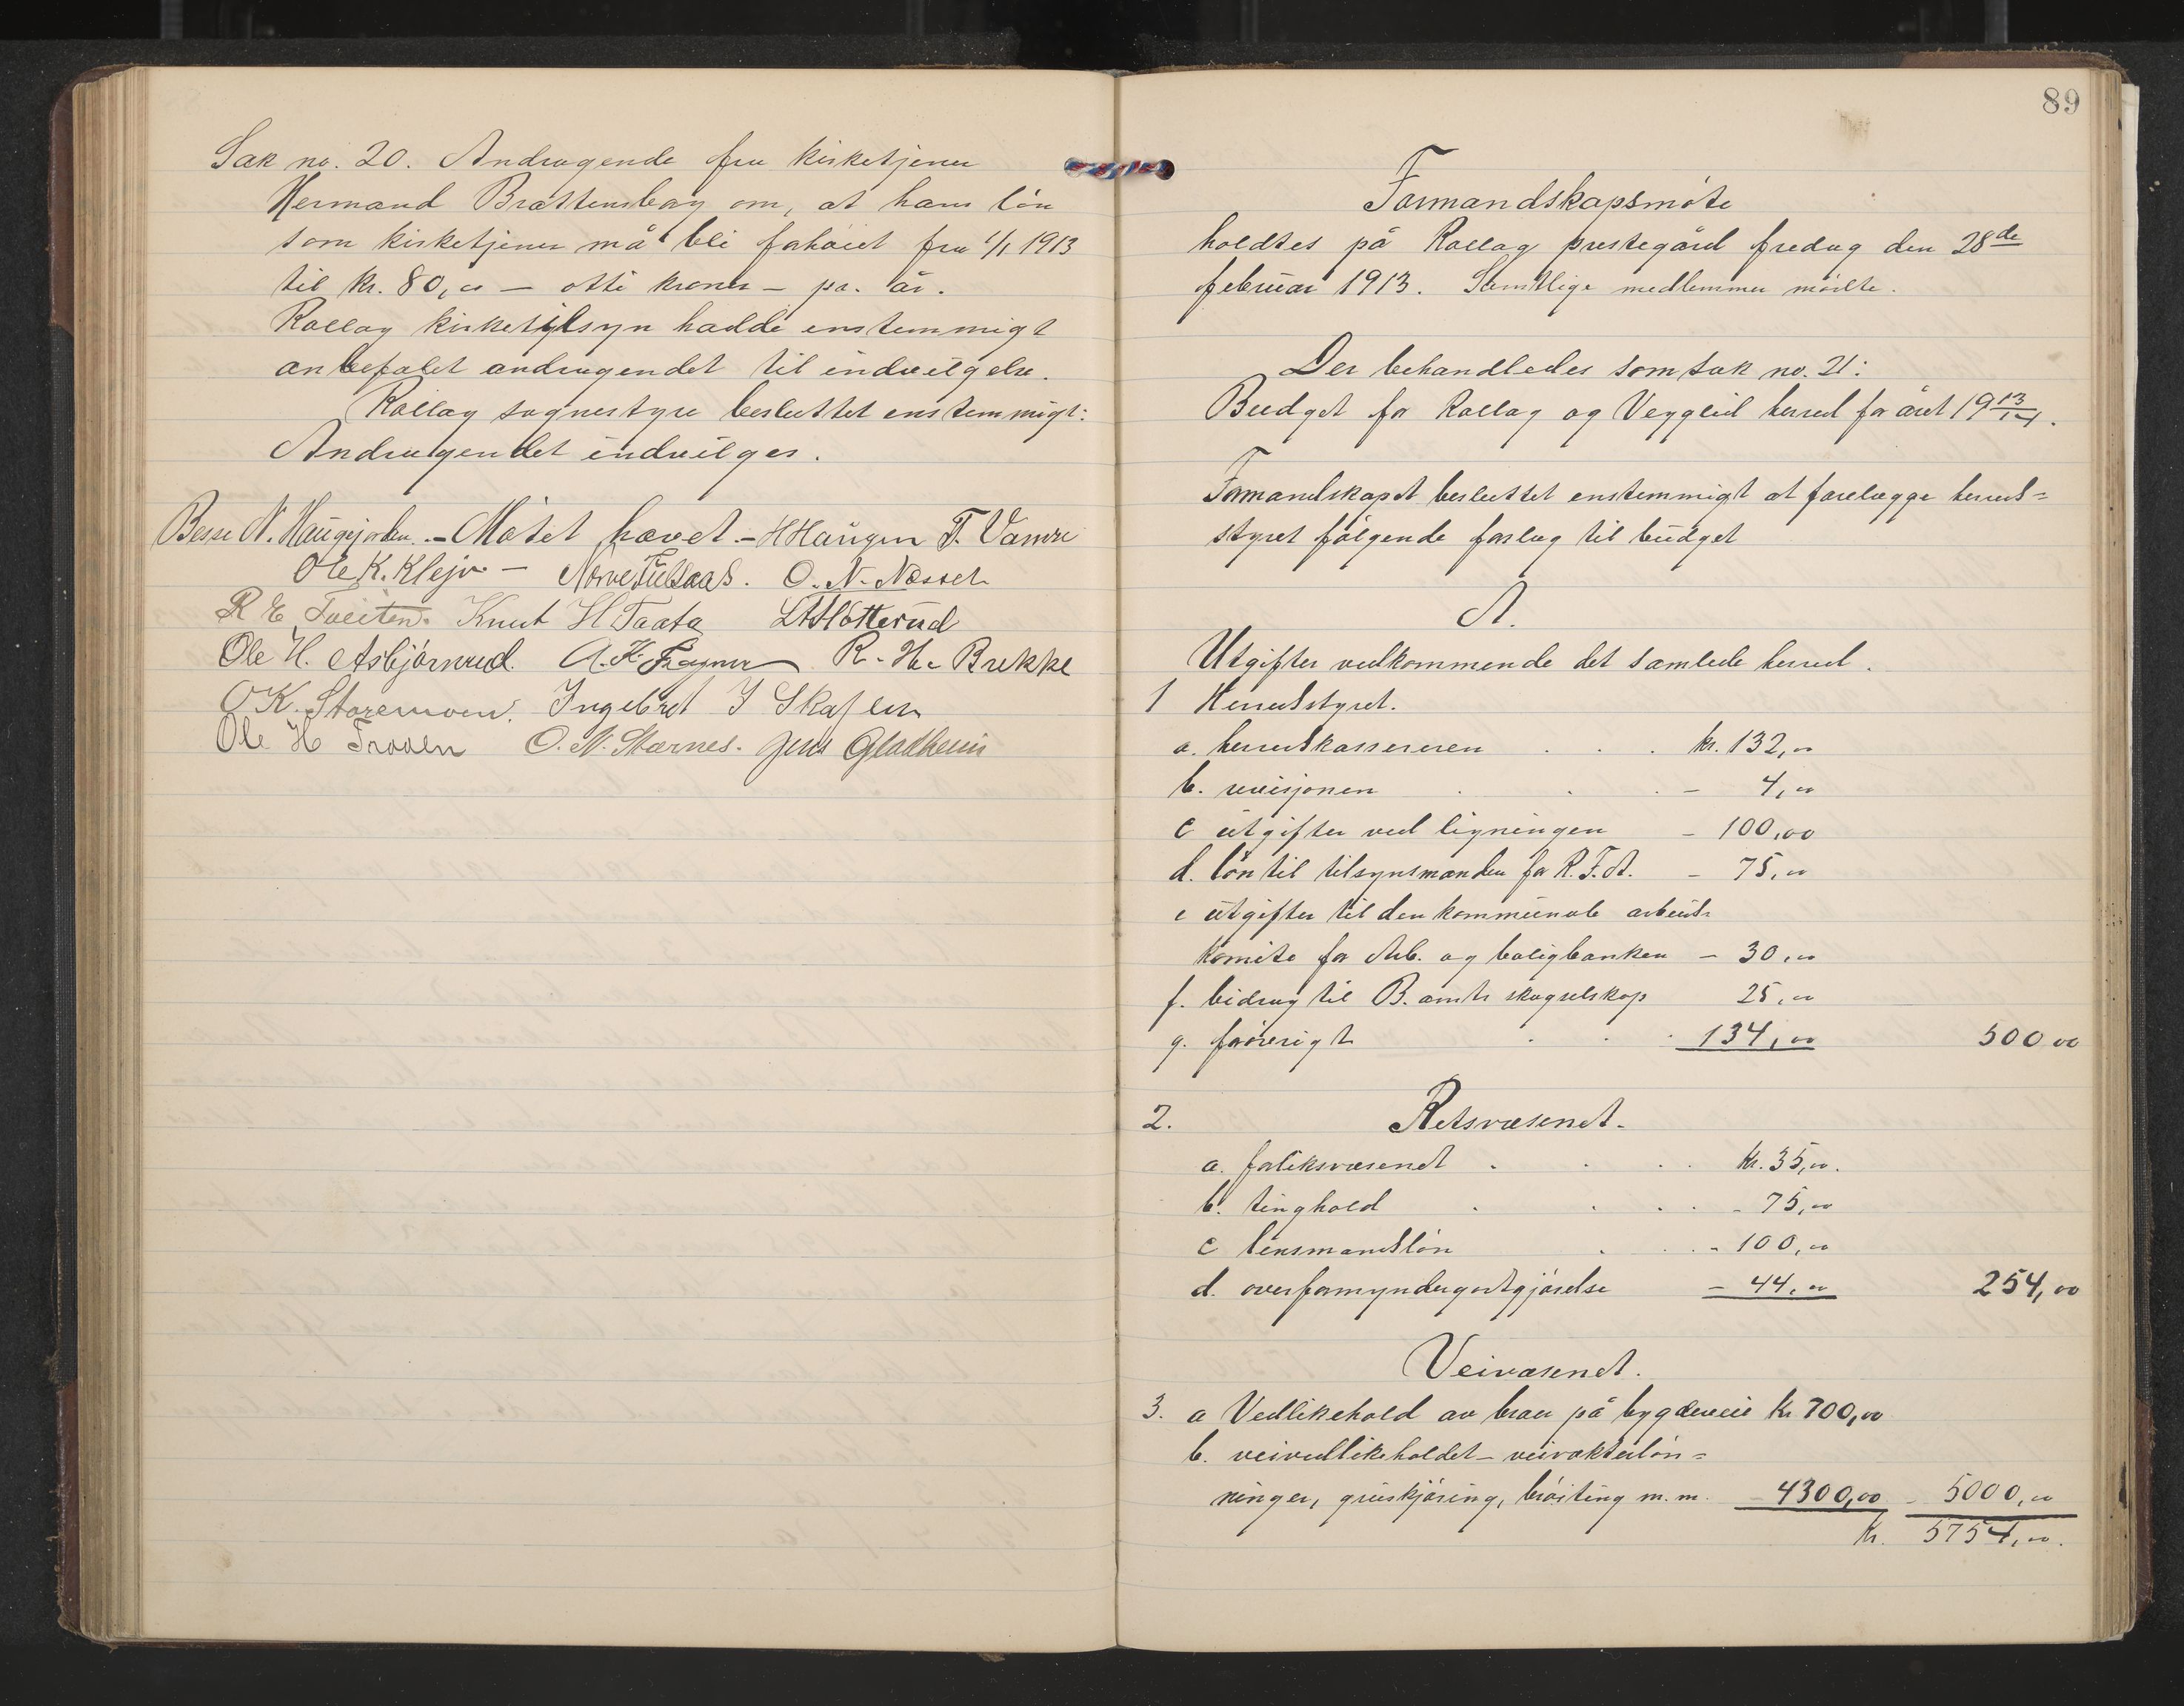 Sak no. 20. Andragende fra kirketjener
Hermand Brattensborg om, at hans løn
som kirketjener må bli forhøiet fra 1/1 1913
til kr. 80,00 – otti kroner – pr. år.
Rollag kirketilsyn hadde enstemmigt
anbefalet andragendet til indvilgelse.
Rollag sognestyre besluttet enstemmigt:
Andragendet indvilges.
Besse N. Haugejorden. – Møtet hævet – H Haugen T. Vamre
Ole K. Klejv – O. N. Næsset
R E Tveiten. Knut H Taata
Ole H. Asbjørnrud. R. H. Brekke
O K. Storemoen. Ingebret I Skajem
Ole H Traaen O. N. Stærnes. Jens Gladheim
89
Formandskapsmøte
holdtes på Rollag prestegård fredag den 28de
februar 1913. Samtlige medlemmer møtte.
Der behandledes som sak no. 21:
Budget for Rollag og Veggli herred for året 1913/14.
Formandskapet besluttet enstemmigt at forelægge herreds=
styret følgende forslag til budget
A.
Utgifter vedkommende det samlede herred.
1 Herredsstyret.
a. herredskassereren . . . kr. 132,00
b. revisjonen . . . – 4,00
c utgifter ved ligningen – 100,00
d. løn til tilsynsmanden for R.F.A. – 75,00
e utgifter til den kommunale arbeids-
komite for Arb. og boligbanken – 30,00
f. bidrag til B. amts skogselskap 25,00
g. forøvrigt . . . 134,00 500 00
2. Retsvæsenet.
a. forliksvæsenet . . . . kr. 35,00.
b. tinghold . . . . – 75,00
c lensmandsløn . . . – 100,00
d. overformyndergodtgjørelse – 44,00 254,00
Veivæsenet.
3. a Vedlikehold av broer på bygdeveie Kr 700,00
b. veivedlikeholdet – veivokterløn=
ninger, gruskjøring, brøiting m.m. – 4300,00 – 5000,00
Kr. 5754,00.